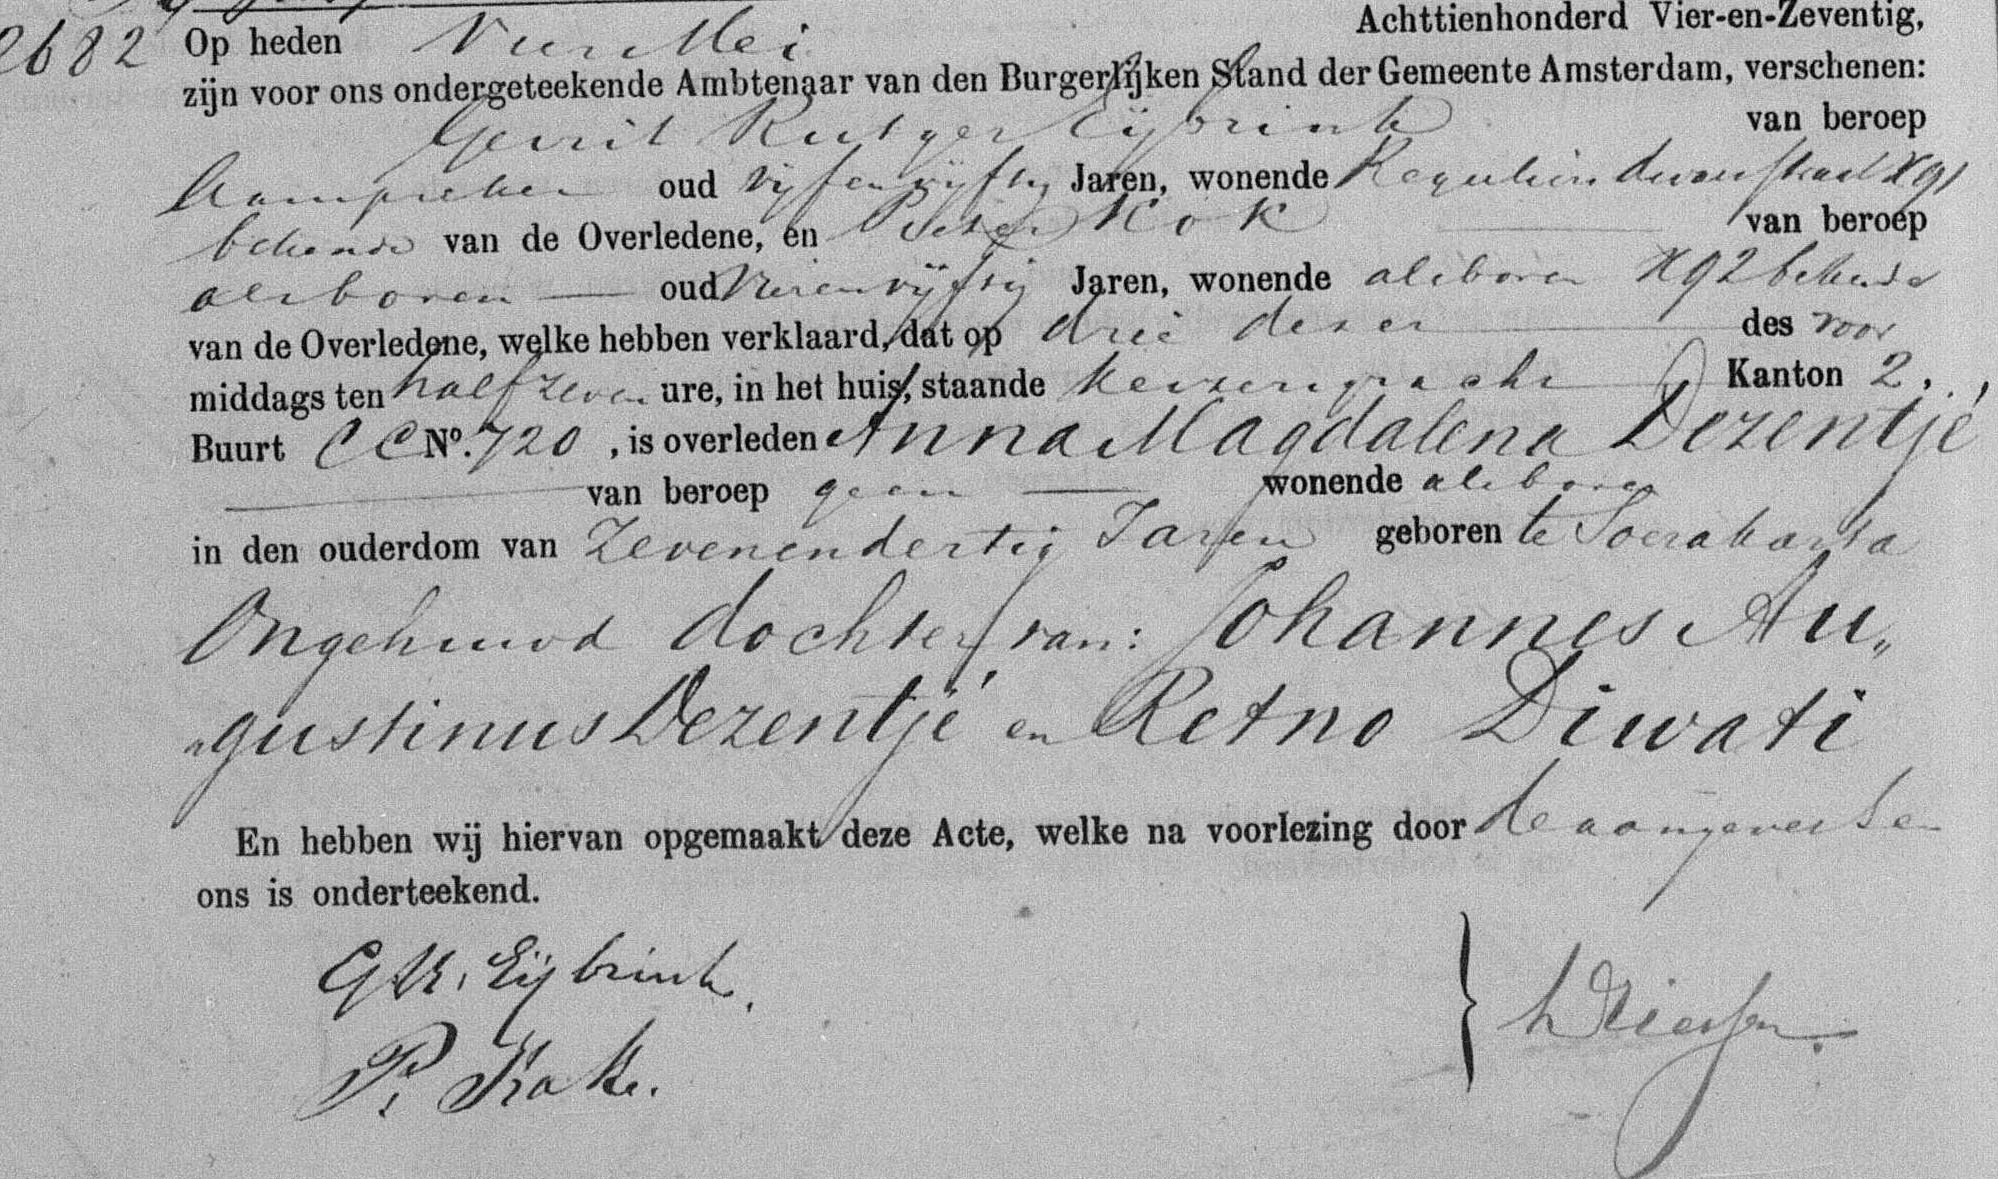 2682 Op heden Vier Mei Achttienhonderd Vier-en-Zeventig,
zijn voor ons ondergeteekende Ambtenaar van den Burgerlijken Stand der Gemeente Amsterdam, verschenen:
Gerrit Rutger Eijbrink van beroep
Aanspreker oud vijfenvijftig Jaren, wonende Reguliersdwarsstraat X 91
bekende van de Overledene, en Pieter Kok van beroep
alsboven oud Vierenvijftig Jaren, wonende alsboven X 92 bekende
van de Overledene, welke hebben verklaard, dat op drie dezer des voor
middags ten half zeven ure, in het huis, staande Keizersgracht Kanton 2,
Buurt CC No. 720, is overleden Anna Magdalena Dezentjé
van beroep geen wonende alsboven
in den ouderdom van Zevenendertig Jaren geboren te Soerakarta
Ongehuwd dochter van: Johannes Au„
„gustinus Dezentjé en Retno Diwati
En hebben wij hiervan opgemaakt deze Acte, welke na voorlezing door de aangevers en
ons is onderteekend.
G R. Eijbrink.
P. Kok.